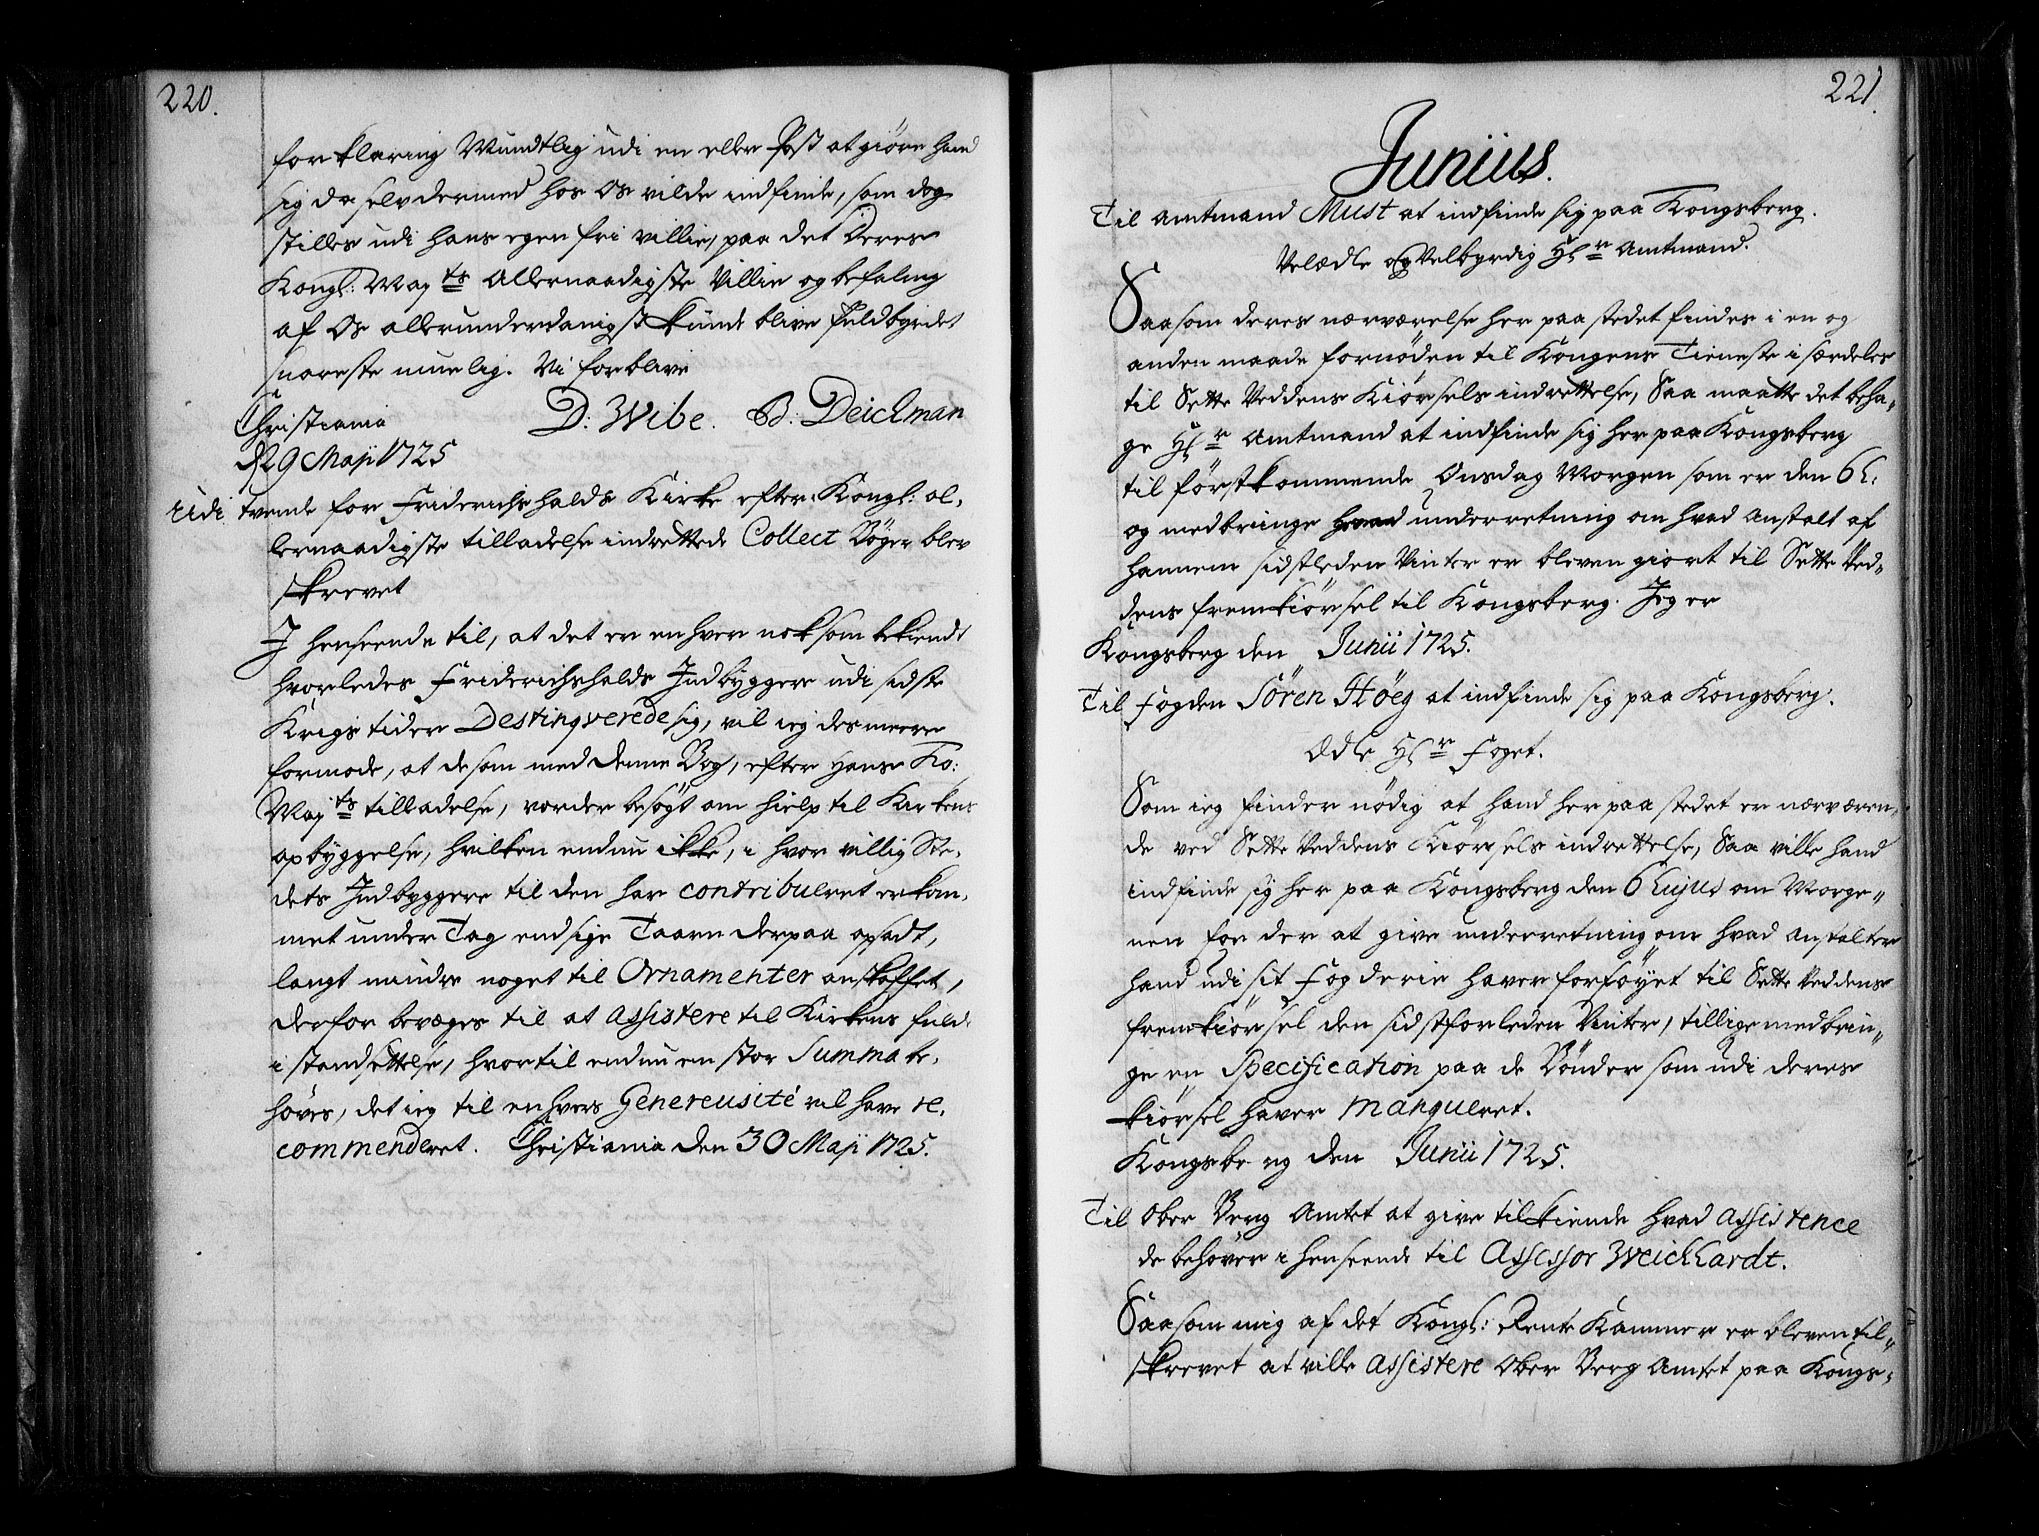 220.
forklaring Mundtlig udi en eller Post at giöre hand
sig da selv dermed hos Os vilde indfinde, som dog
stilles udi hans egen fri villie, paa det Deres
Kongl: Maj.ts Allernaadigste Villie og befaling
af Os allerunderdanigst kunde blive fuldbyrdet
snareste muelig. Vi forblive
Christiania D: Wibe. B: Deichman
d 29 Maji 1725
Udi tvende for Friderichshalds Kirke efter Kongl: al,
lernaadigste tilladelse indrettede Collect Böger blev
skrevet
I henseende til, at det er enhver noksom bekiendt
hvorledes Friderichshalds Indbyggere udi sidste
Krigs tider Destingverede sig, vil ieg des meere
formode, at de som med denne Bog, efter Hans Ko:
Maj.ts tilladelse, vorder besögt om hielp til Kirkens
opbyggelse, hvilken endnu ikke, i hvor villig Ste,
dets Indbyggere til den har contribueret er kom,
met under Tag endsige Taarn derpaa opsadt,
langt mindre noget til Ornamenter anskaffet,
derfor bevæges til at assistere til Kirkens fuld,
i standsettelse, hvortil endnu en stor Summa be,
höves, det ieg til enhvers Genereusité vil have re,
commenderet. Christiania den 30 Maji 1725.
221.
Junius.
Til Amtmand Must at indfinde sig paa Kongsberg.
Velædle og Velbyrdig Hr Amtmand.
Saasom deres nærværelse her paa stedet findes i en og
anden maade fornöden til Kongens Tieneste i særdeles
til Sette Veddens Kiörsels indrettelse, Saa maatte det beha-
ge Hr Amtmand at indfinde sig her paa Kongsberg
til förstkommende Onsdag Morgen som er den 6 h:
og medbringe underretning om hvad Anstalt af
hannem sidstleden Vinter er bleven giort til Sette Ved-
dens fremkiörsel til Kongsberg. Jeg er
Kongsberg den Junii 1725.
Til Fogden Sören Höeg at indfinde sig paa Kongsberg:
Ædle Hr Foget.
Som ieg finder nödig at hand her paa stedet er nærværen-
de ved Sette Veddens Kiörsels indrettelse, Saa ville hand
indfinde sig her paa Kongsberg den 6 hujus om Morge-
nen for der at give underretning om hvad Anstalter
hand udi sit Fogderie haver forföyet til Sette Veddens
fremkiörsel den sidstforleden Vinter, tillige medbrin-
ge en Specification paa de Bönder som udi deres
kiörsel haver manqueret.
Kongsberg den Junii 1725.
Til Ober Berg Amtet at give tilkiende hvad Assistence
de behöver i henseende til Assessor Weichhardt.
Saasom mig af det Kongl: Rente Kammer er bleven til-
skrevet at ville assistere Ober Berg Amtet paa Kongs-